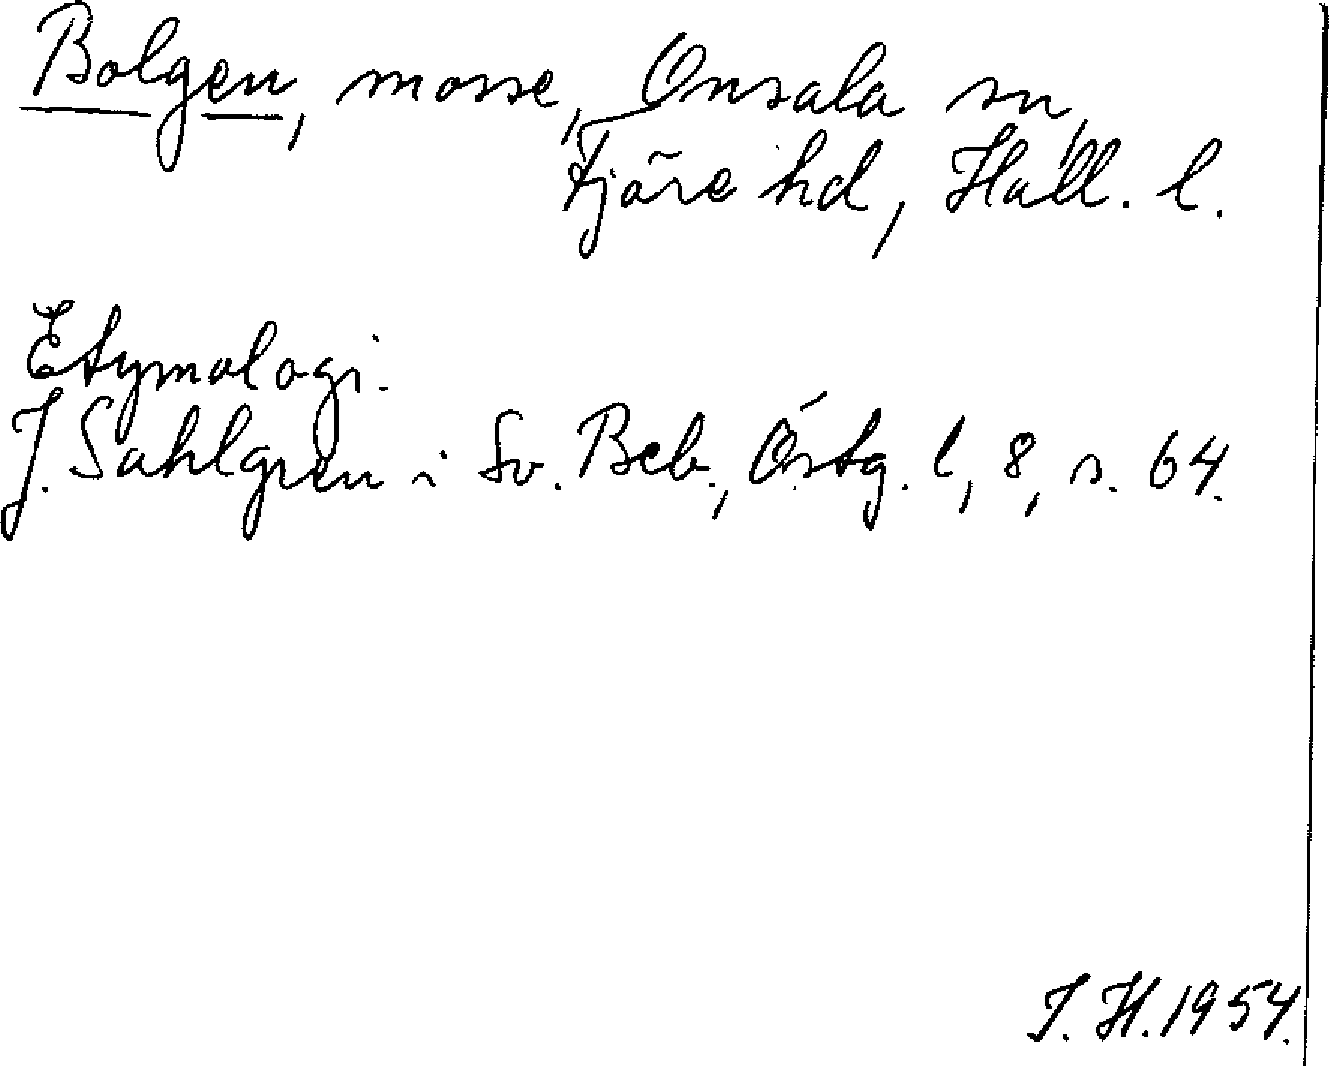 Bolgen, mosse, Onsala sn,
Fjäre hd, Hall. l.
Etymologi.
J. Sahlgren i Sv. Beb., Östg. l, 8, s. 64.
I. H. 1954.